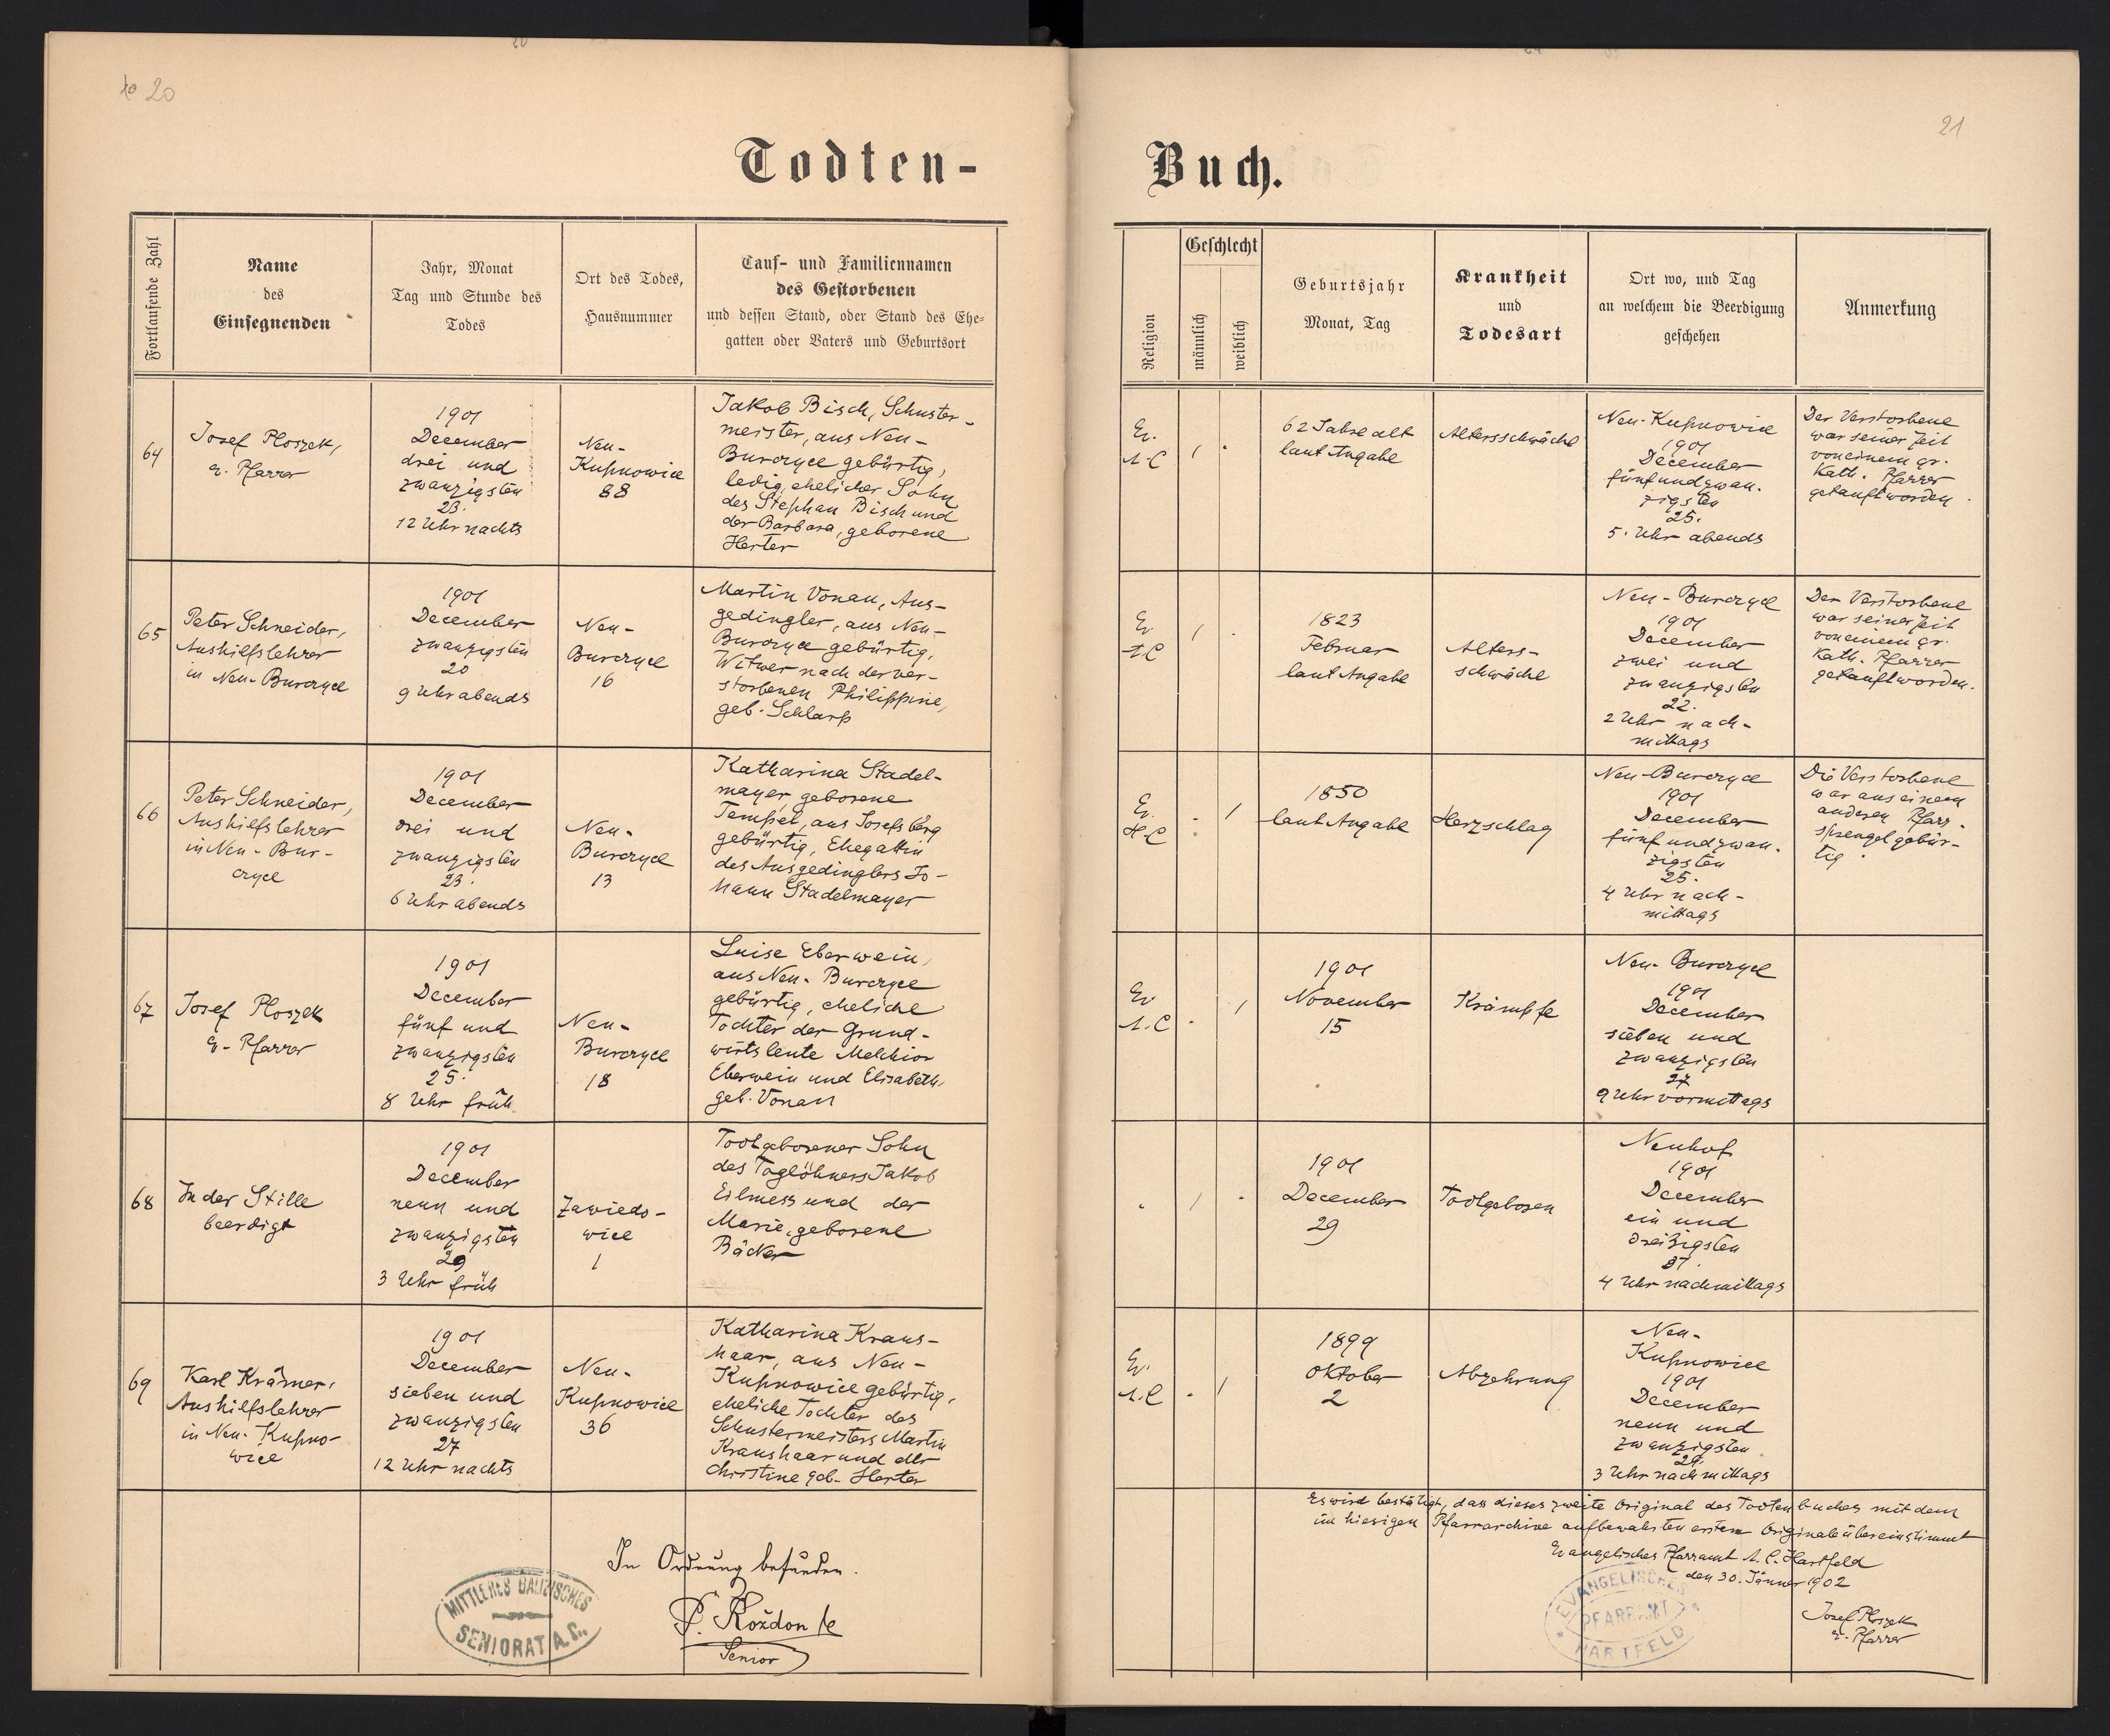 20
21
Todten-
Buch.
Fortlaufende Zahl
Name
des
Einsegnenden
Jahr, Monat
Tag und Stunde des
Todes
Ort des Todes,
Hausnummer
Tauf- und Familiennamen
des Gestorbenen
und dessen Stand, oder Stand des Ehe-
gatten oder Vaters und Geburtsort
Religion
Geschlecht
männlich
weiblich
Geburtsjahr
Monat, Tag
Krankheit
und
Todesart
Ort wo, und Tag
an welchem die Beerdigung
geschehen
Anmerkung
64
Josef Ploszek,
e. Pfarrer
1901
December
drei und
zwanzigsten
23.
12 Uhr nachts
Neu-
Kupnowice
88
Jakob Bisch, Schuster-
meister, aus Neu-
Burczyce gebürtig,
ledig, ehelicher Sohn
des Stephan Bisch und
der Barbara, geborene
Herter
Ev.
A. C
1
62 Jahre alt
laut Angabe
Altersschwäche
Neu-Kupnowice
1901
December
fünfundzwan-
zigsten
25.
5. Uhr abends
Der Verstorbene
war seiner Zeit
von einem gr.
Kath. Pfarrer
getauft worden.
65
Peter Schneider,
Aushilfslehrer
in Neu-Burczyce
1901
December
zwanzigsten
20
9 Uhr abends
Neu-
Burczyce
16
Martin Vonau, Aus-
gedingler, aus Neu-
Burczyce gebürtig,
Witwer nach der ver-
storbenen Philippine,
geb. Schlarp
Ev.
A.C
1
1823
Februar
laut Angabe
Alters-
schwäche
Neu-Burczyce
1901
December
zwei und
zwanzigsten
22.
2 Uhr nach-
mittags
Der Verstorbene
war seiner Zeit
von einem gr.
Kath. Pfarrer
getauft worden.
66
Peter Schneider,
Aushilfslehrer
in Neu-Bur-
czyce
1901
December
drei und
zwanzigsten
23.
6 Uhr abends
Neu-
Burczyce
13
Katharina Stadel-
mayer, geborene
Tempel, aus Josefsberg
gebürtig, Ehegattin
des Ausgedinglers Jo-
hann Stadelmayer
Ev.
H.C
1
1850
laut Angabe
Herzschlag
Neu-Burczyce
1901
December
fünf und zwan-
zigsten
25.
4 Uhr nach-
mittags
Die Verstorbene
war aus einem
anderen Pfarr-
sprengel gebür-
tig.
67
Josef Ploszek
e. Pfarrer
1901
December
fünf und
zwanzigsten
25.
8 Uhr früh
Neu-
Burczyce
18
Luise Eberwein,
aus Neu-Burczyce
gebürtig, eheliche
Tochter der Grund-
wirtsleute Melchior
Eberwein und Elisabeth,
geb. Vonau
Ev.
A.C
1
1901
November
15
Krämpfe
Neu-Burczyce
1901
December
sieben und
zwanzigsten
27
9 Uhr vormittags
68
In der Stille
beerdigt
1901
December
neun und
zwanzigsten
29
3 Uhr früh
Zawiedo-
wice
1
Todtgeborener Sohn
des Taglöhners Jakob
Eilmess und der
Marie, geborene
Bäcker
1
1901
December
29
Todtgeboren
Neuhof
1901
December
ein und
dreißigsten
31.
4 Uhr nachmittags
69
Karl Krämer,
Aushilfslehrer
in Neu-Kupno-
wice
1901
December
sieben und
zwanzigsten
27
12 Uhr nachts
Neu-
Kupnowice
36
Katharina Kraus-
haar, aus Neu-
Kupnowice gebürtig,
eheliche Tochter des
Schustermeisters Martin
Kraushaar und der
Christine geb. Herter
Ev.
A.C
1
1899
Oktober
2
Abzehrung
Neu-
Kupnowice
1901
December
neun und
zwanzigsten
29.
3 Uhr nachmittags
In Ordnung befunden.
P. Rożdon
Senior
MITTLERES GALIZISCHES
SENIORAT A.C.
Es wird bestätigt, dass dieses zweite Original des Todtenbuches mit dem
im hiesigen Pfarrarchive aufbewahrten ersten Originale übereinstimmt
Evangelisches Pfarramt A. C. Hartfeld
den 30. Jänner 1902
Josef Ploszek
e. Pfarrer
EVANGELISCHES
PFARRAMT
HARTFELD